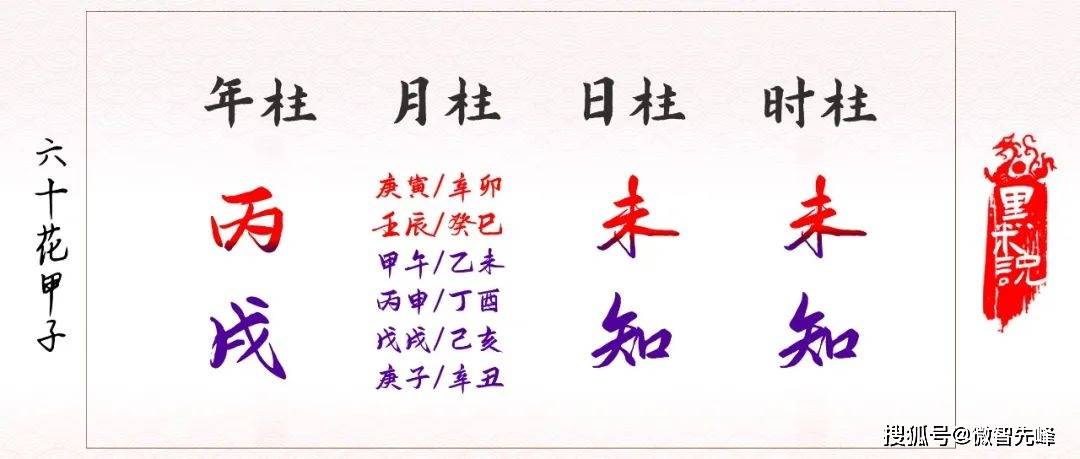 六十花甲子
年柱 月柱 日柱 时柱
丙
戌
庚寅/辛卯
壬辰/癸巳
甲午/乙未
丙申/丁酉
戊戌/己亥
庚子/辛丑
未
知
未
知
黑木说
搜狐号@微智先峰